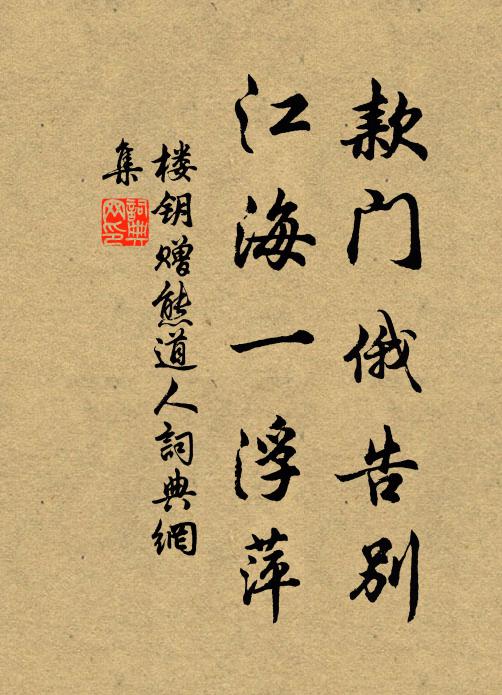 款门俄告别
江海一浮萍
楼钥赠熊道人詞典網
集
詞典
网印